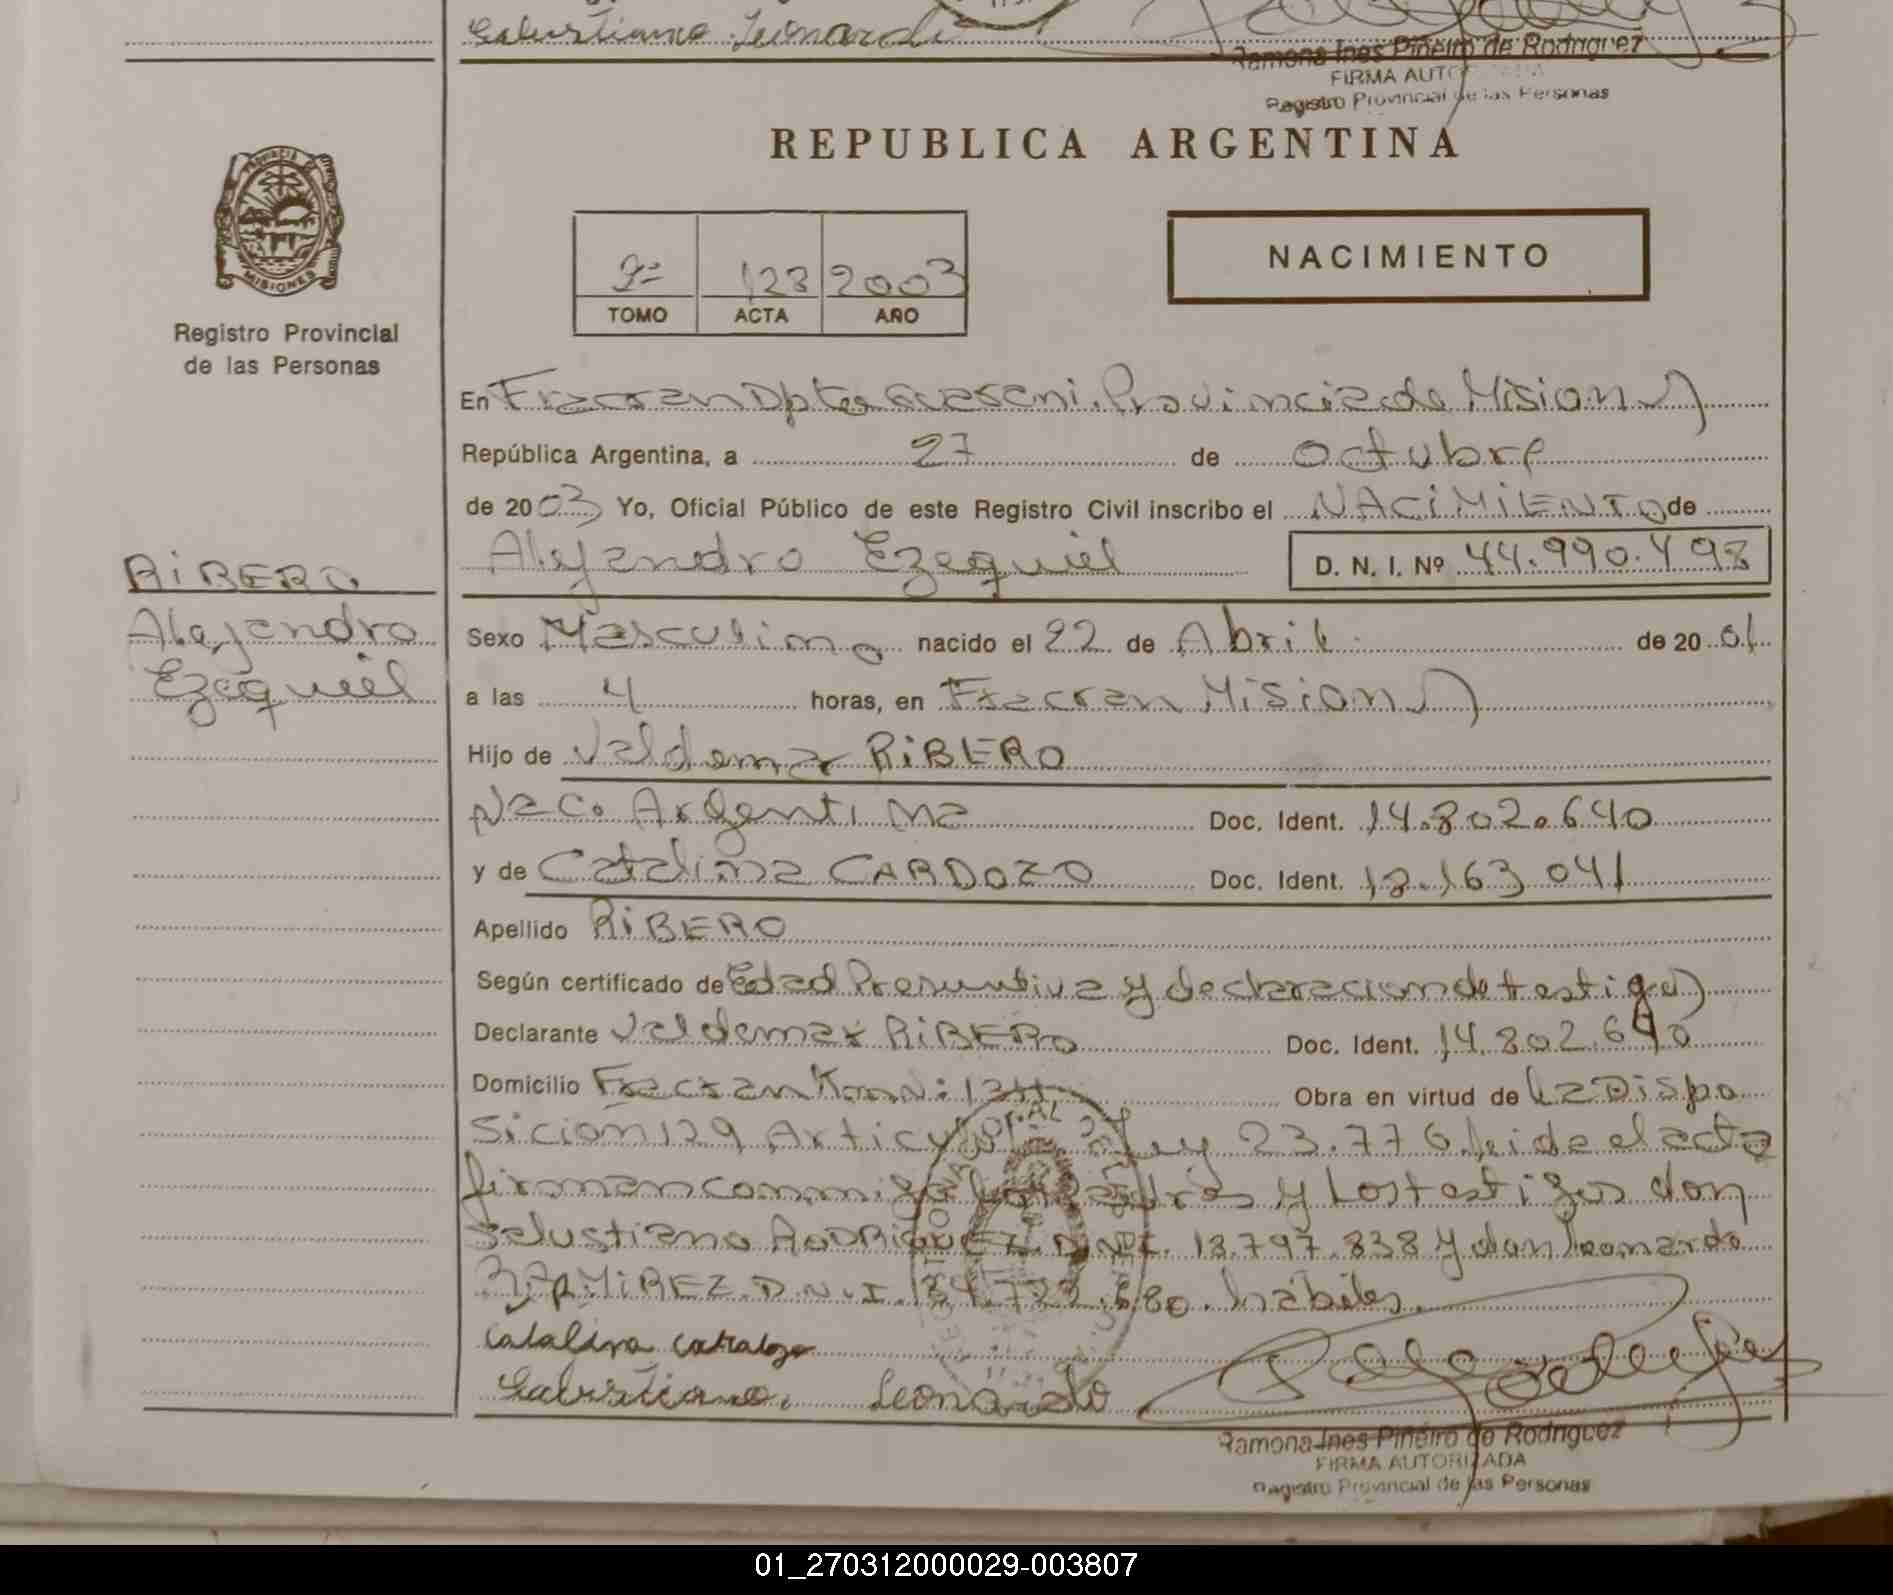 Salustiano Leonardo
Ramona Ines Piñeiro de Rodriguez
FIRMA AUTORIZADA
Registro Provincial de las Personas
REPUBLICA ARGENTINA
PROVINCIA DE
MISIONES
Registro Provincial
de las Personas
2º 123 2003
TOMO ACTA AÑO
NACIMIENTO
En Fracran Dpto Guarani. Provincia de Misiones
República Argentina, a 27 de octubre
de 2003 Yo, Oficial Público de este Registro Civil inscribo el NACiMiENTO de
Alejandro Ezequiel D. N. I. Nº 44.990.498
RiBERO
Alejandro
Ezequiel
Sexo Masculino nacido el 22 de Abril de 2001
a las 4 horas, en Fracran Misiones
Hijo de Valdemar RiBERO
Nac. Argentina Doc. Ident. 14.802.640
y de Catalina CARDOZO Doc. Ident. 18.163.041
Apellido RiBERO
Según certificado de Edad Presuntiva y declaracion de testigos
Declarante Valdemar RiBERO Doc. Ident. 14.802.640
Domicilio Fracran Obra en virtud de La Dispo
sicion 129 Articulo Ley 23.776. leida el acta
firman conmigo los Padres y Los testigos don
Salustiano RODRiGUEZ. D.N.I. 18.797.838 y don leonardo
RAMiREZ. D.N.I. habiles.
Catalina
Salustiano. Leonardo
Ramona Ines Piñeiro de Rodriguez
FIRMA AUTORIZADA
Registro Provincial de las Personas
01_270312000029-003807